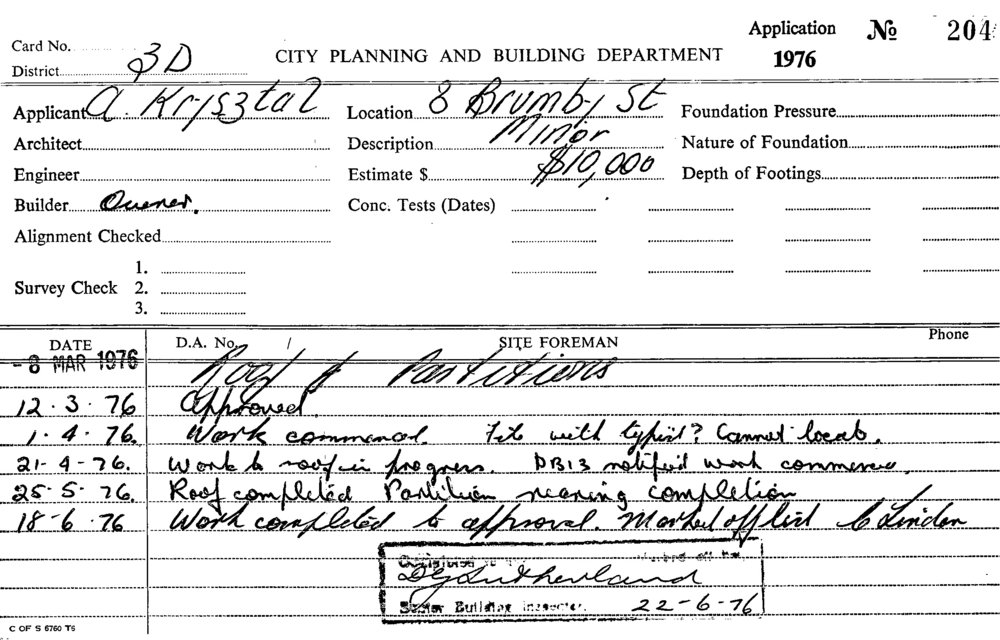 Application № 204
Card No.
CITY PLANNING AND BUILDING DEPARTMENT 1976
District 3D
Applicant A. Krysztal Location 8 Brumby St Foundation Pressure
Architect Description Minor Nature of Foundation
Engineer Estimate $ $10,000 Depth of Footings
Builder Owner. Conc. Tests (Dates)
Alignment Checked
1.
Survey Check 2.
3.
DATE D.A. No. / SITE FOREMAN Phone
-8 MAR 1976 Roof & Partitions
12.3.76 Approved.
1.4.76. Work commenced. File with typist? Cannot locate.
21-4-76. Work to roof in progress. DB13 notified work commence.
25.5.76. Roof completed Partition nearing completion
18-6.76 Work completed to approval. Marked off list C Linden
off
DG Sutherland
Building Inspector. 22-6-76
C OF S 6760 T6